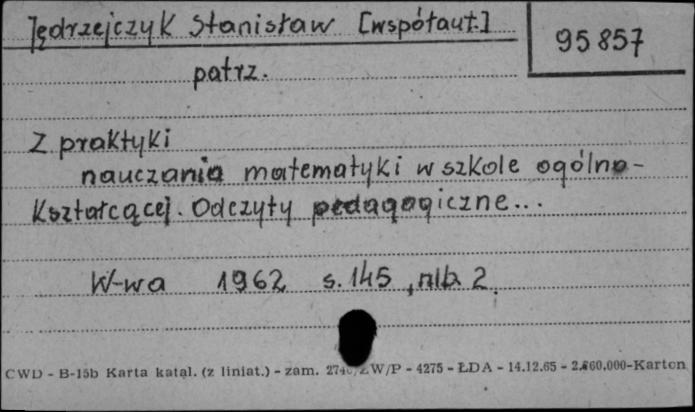 Jędrzejczyk Stanisław [współaut.]
95857
patrz.
Z praktyki
nauczania matematyki w szkole ogólno-
kształcącej. Odczyty pedagogiczne...
W-wa 1962 s. 145, nlb. 2.
CWD - B-15b Karta katal. (z liniat.) - zam. W/P - 4275 - ŁDA - 14.12.65 - 2.660.000-Karton